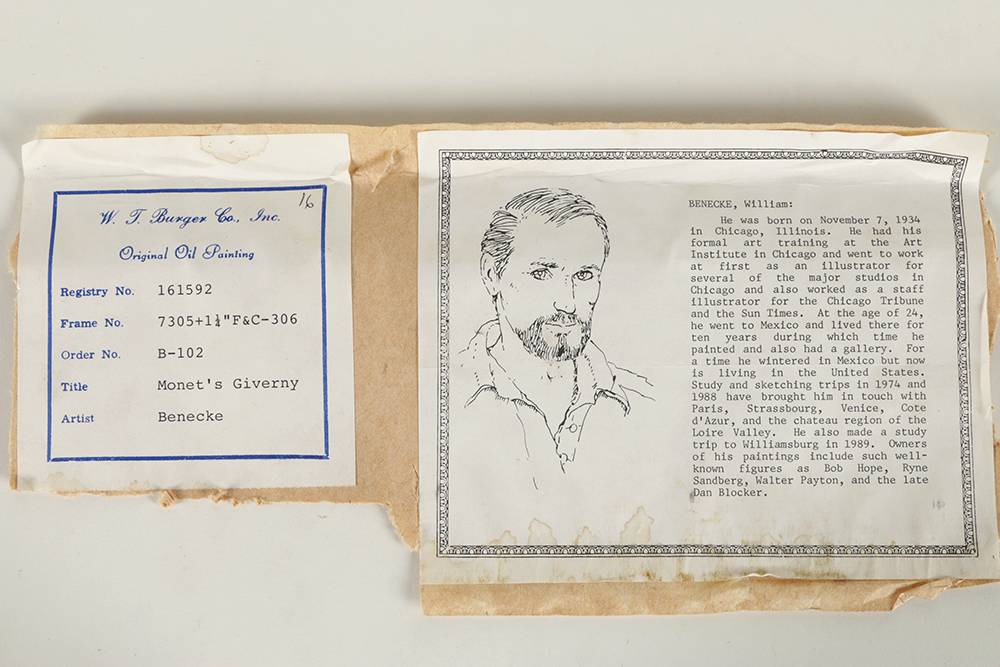 16
W. T. Burger Co., Inc.
Original Oil Painting
Registry No. 161592
Frame No. 7305+1¼"F&C-306
Order No. B-102
Title Monet's Giverny
Artist Benecke
BENECKE, William:
He was born on November 7, 1934
in Chicago, Illinois. He had his
formal art training at the Art
Institute in Chicago and went to work
at first as an illustrator for
several of the major studios in
Chicago and also worked as a staff
illustrator for the Chicago Tribune
and the Sun Times. At the age of 24,
he went to Mexico and lived there for
ten years during which time he
painted and also had a gallery. For
a time he wintered in Mexico but now
is living in the United States.
Study and sketching trips in 1974 and
1988 have brought him in touch with
Paris, Strassbourg, Venice, Cote
d'Azur, and the chateau region of the
Loire Valley. He also made a study
trip to Williamsburg in 1989. Owners
of his paintings include such well-
known figures as Bob Hope, Ryne
Sandberg, Walter Payton, and the late
Dan Blocker.